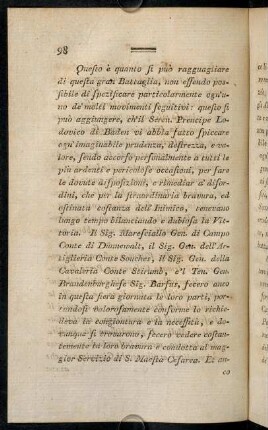 98
Questo è quanto si può ragguagliare
di questa gran Battaglia, non essendo pos-
sibile di spezificare particolarmente ogn'u-
no de' molti movimenti seguitivi: questo si
può aggiungere, ch'il Seren. Principe Lo-
dovico di Baden vi abbia fatto spiccare
ogn'imaginabile prudenza, destrezza, e va-
lore, sendo accorso personalmente a tutti le
più ardenti e pericolose occasioni, per fare
le dovute disposizioni, e rimediar a' disor-
dini, che per la straordinaria bravura, ed
ostinata costanza dell' Inimico, tenevano
lungo tempo bilanciando e dubiosa la Vit-
toria. Il Sig. Maresciallo Gen. di Campo
Conte di Dünnewalt, il Sig. Gen. dell' Ar-
tiglieria Conte Souches, il Sig. Gen. della
Cavaleria Conte Stirumb, e'l Ten. Gen.
Brandenburghese Sig. Barfus, fecero anco
in questa fiera giornata le loro parti, por-
tandosi valorosamente conforme lo richie-
deva la congiontura e la necessità, e do-
vunque si trovarono, fecero vedere costan-
temente la loro bravura e condotta al mag-
gior Servizio di S. Maestà Cesarea. Et an-
co